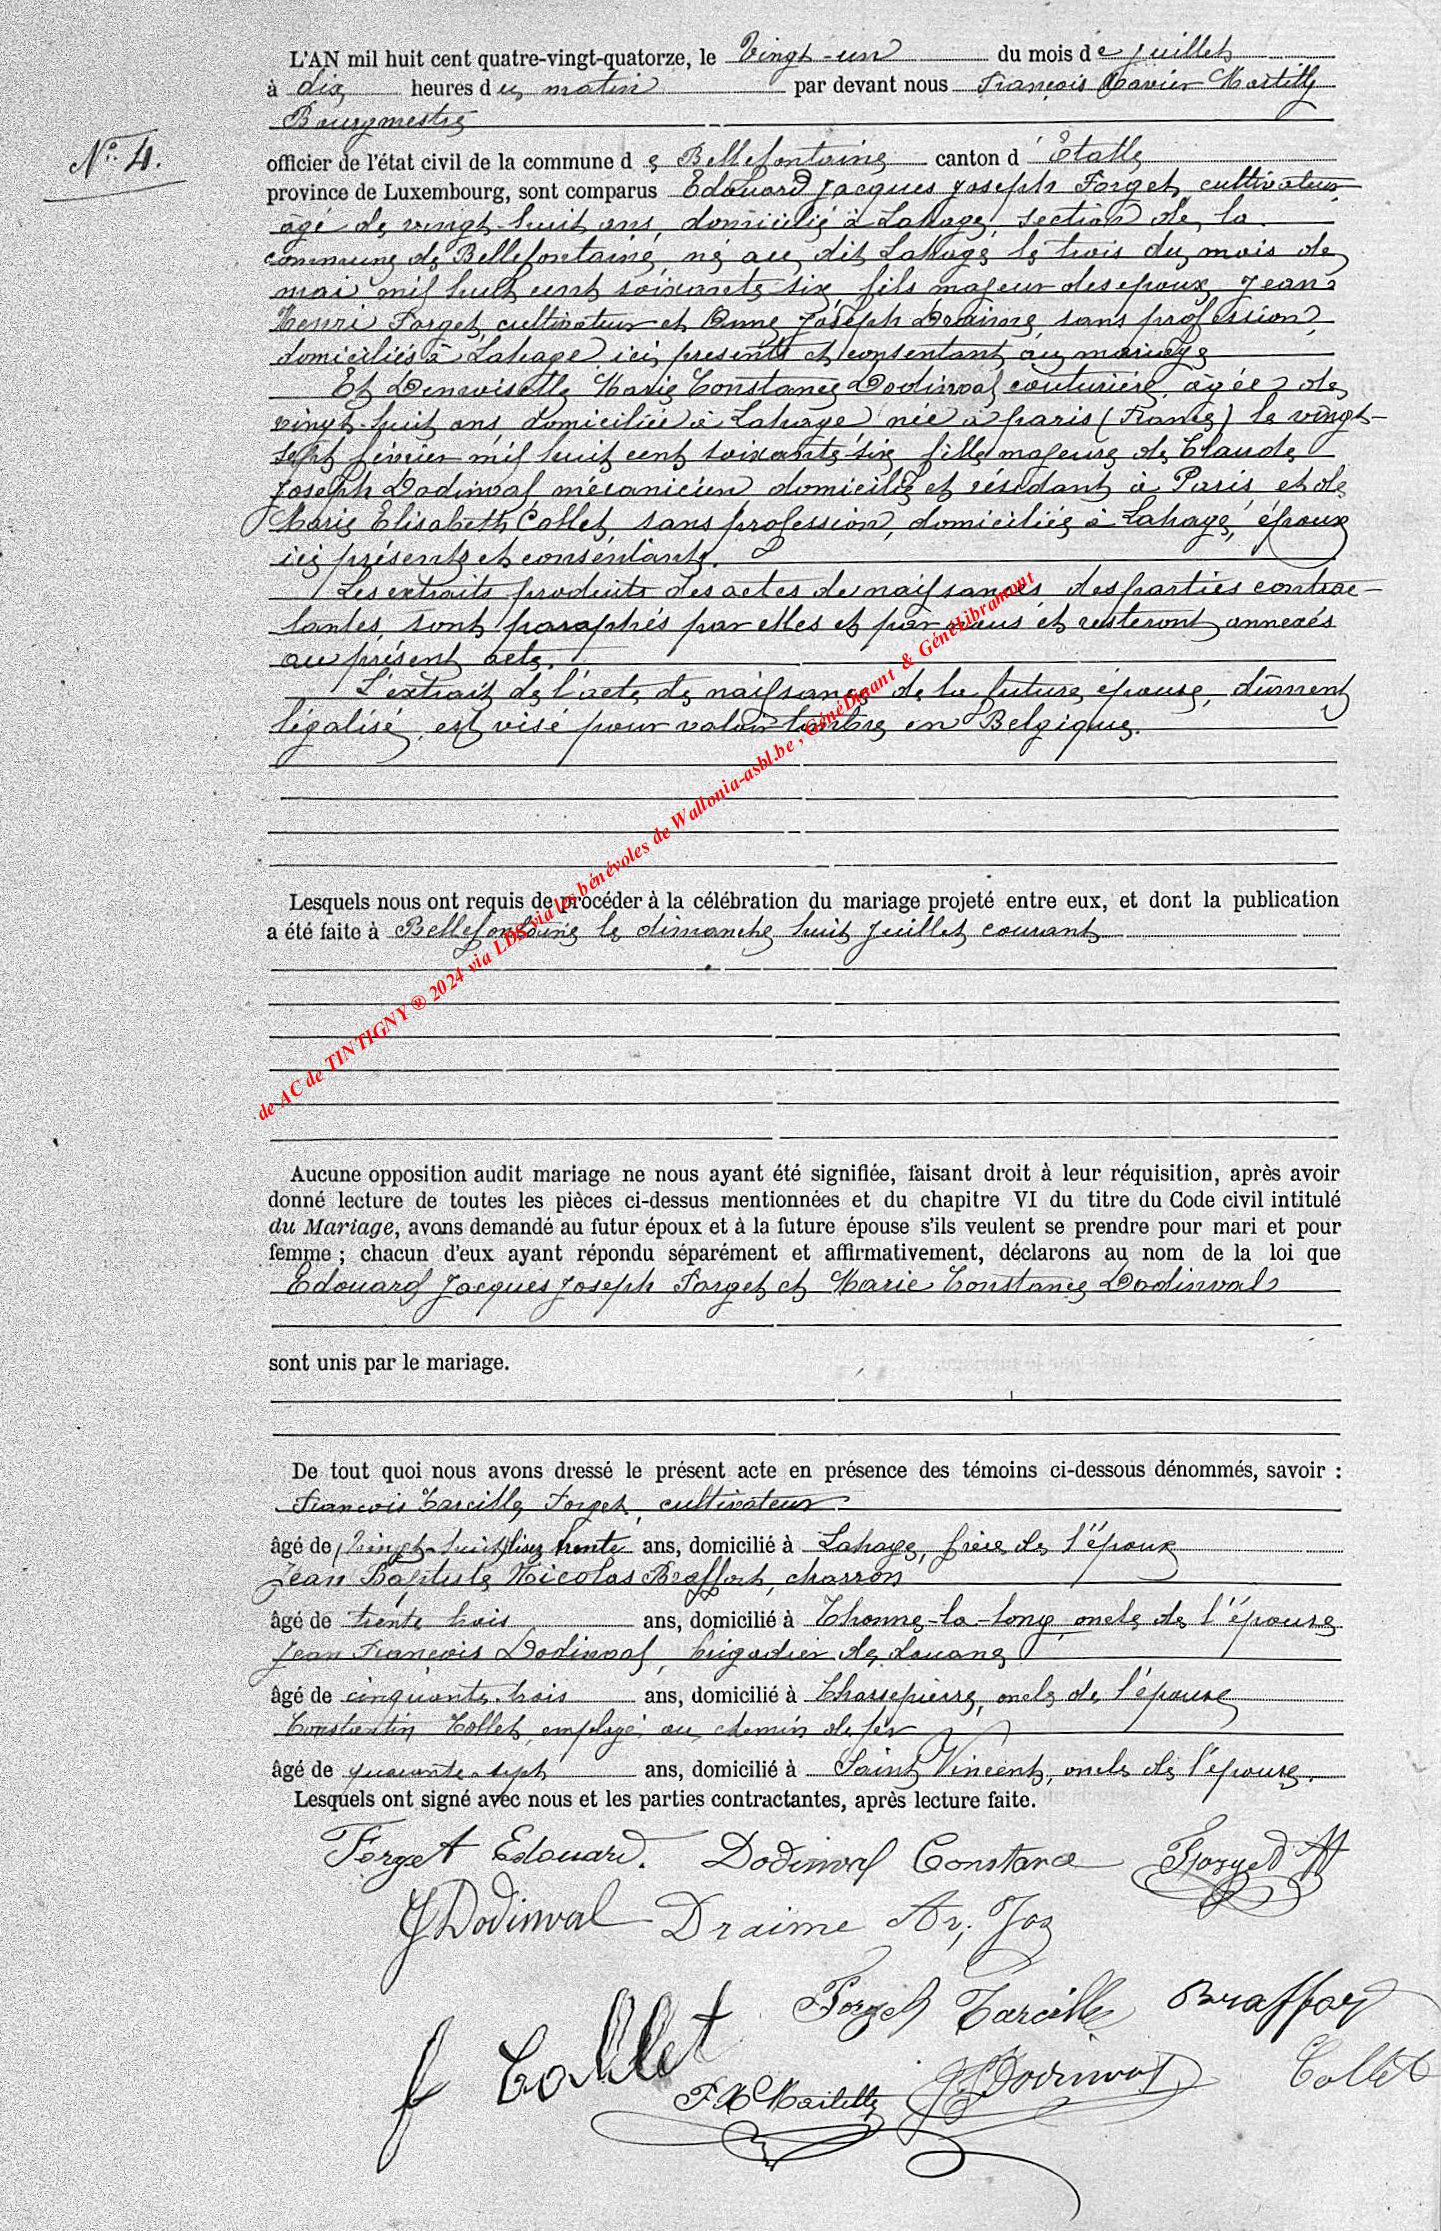 L'AN mil huit cent quatre-vingt-quatorze, le Vingt-un du mois de juillet
à dix heures du matin par devant nous François Xavier Martilly
Bourgmestre
N° 4.
officier de l'état civil de la commune de Bellefontaine canton d'Etalle
province de Luxembourg, sont comparus Edouard Jacques Joseph Forget, cultivateur
âgé de vingt-huit ans, domicilié à Lahage, section de la
commune de Bellefontaine, né au dit Lahage le trois du mois de
mai mil huit cent soixante six, fils majeur des époux Jean
Henri Forget, cultivateur et Anne Joseph Draime, sans profession,
domiciliés à Lahage, ici présents et consentant au mariage
Et Demoiselle Marie Constance Dodinval couturière, âgée de
vingt-huit ans, domiciliée à Lahage, née à paris (France) le vingt-
sept février mil huit cent soixante-six, fille majeure de Claude
Joseph Dodinval, mécanicien domicilié et résidant à Paris, et de
Marie Elisabeth Collet, sans profession, domiciliée à Lahage, époux
ici présents et consentants.
Les extraits produits des actes de naissances des parties contrac-
tantes, sont paraphés par elles et par nous et resteront annexés
au présent acte.
L'extrait de l'acte de naissance de la future épouse, dûment
légalisé, est visé pour valoir timbre en Belgique.
Lesquels nous ont requis de procéder à la célébration du mariage projeté entre eux, et dont la publication
a été faite à Bellefontaine le dimanche huit Juillet courant
de AC de TINTIGNY ® 2024 via LDS via les bénévoles de Wallonia-asbl.be , GénéDinant & GénéLibramont
Aucune opposition audit mariage ne nous ayant été signifiée, faisant droit à leur réquisition, après avoir
donné lecture de toutes les pièces ci-dessus mentionnées et du chapitre VI du titre du Code civil intitulé
du Mariage, avons demandé au futur époux et à la future épouse s'ils veulent se prendre pour mari et pour
femme ; chacun d'eux ayant répondu séparément et affirmativement, déclarons au nom de la loi que
Edouard Jacques Joseph Forget et Marie Constance Dodinval
sont unis par le mariage.
De tout quoi nous avons dressé le présent acte en présence des témoins ci-dessous dénommés, savoir :
François Tarcille Forget, cultivateur
âgé de (vingt-huit) lisez trente ans, domicilié à Lahage, frère de l'époux
Jean Baptiste Nicolas Braffort, charron
âgé de trente trois ans, domicilié à Thonne-la-long, oncle de l'épouse
Jean François Dodinval, brigadier de douane
âgé de cinquante-trois ans, domicilié à Chassepierre, oncle de l'épouse
Constantin Collet, employé au chemin de fer
âgé de quarante-sept ans, domicilié à Saint Vincent, oncle de l'épouse.
Lesquels ont signé avec nous et les parties contractantes, après lecture faite.
Forget Edouard. Dodinval Constance Forget
J Dodinval Draime An, Jos
Forget Tarcille Braffort
f Collet
F X Martilly J F Dodinval Collet